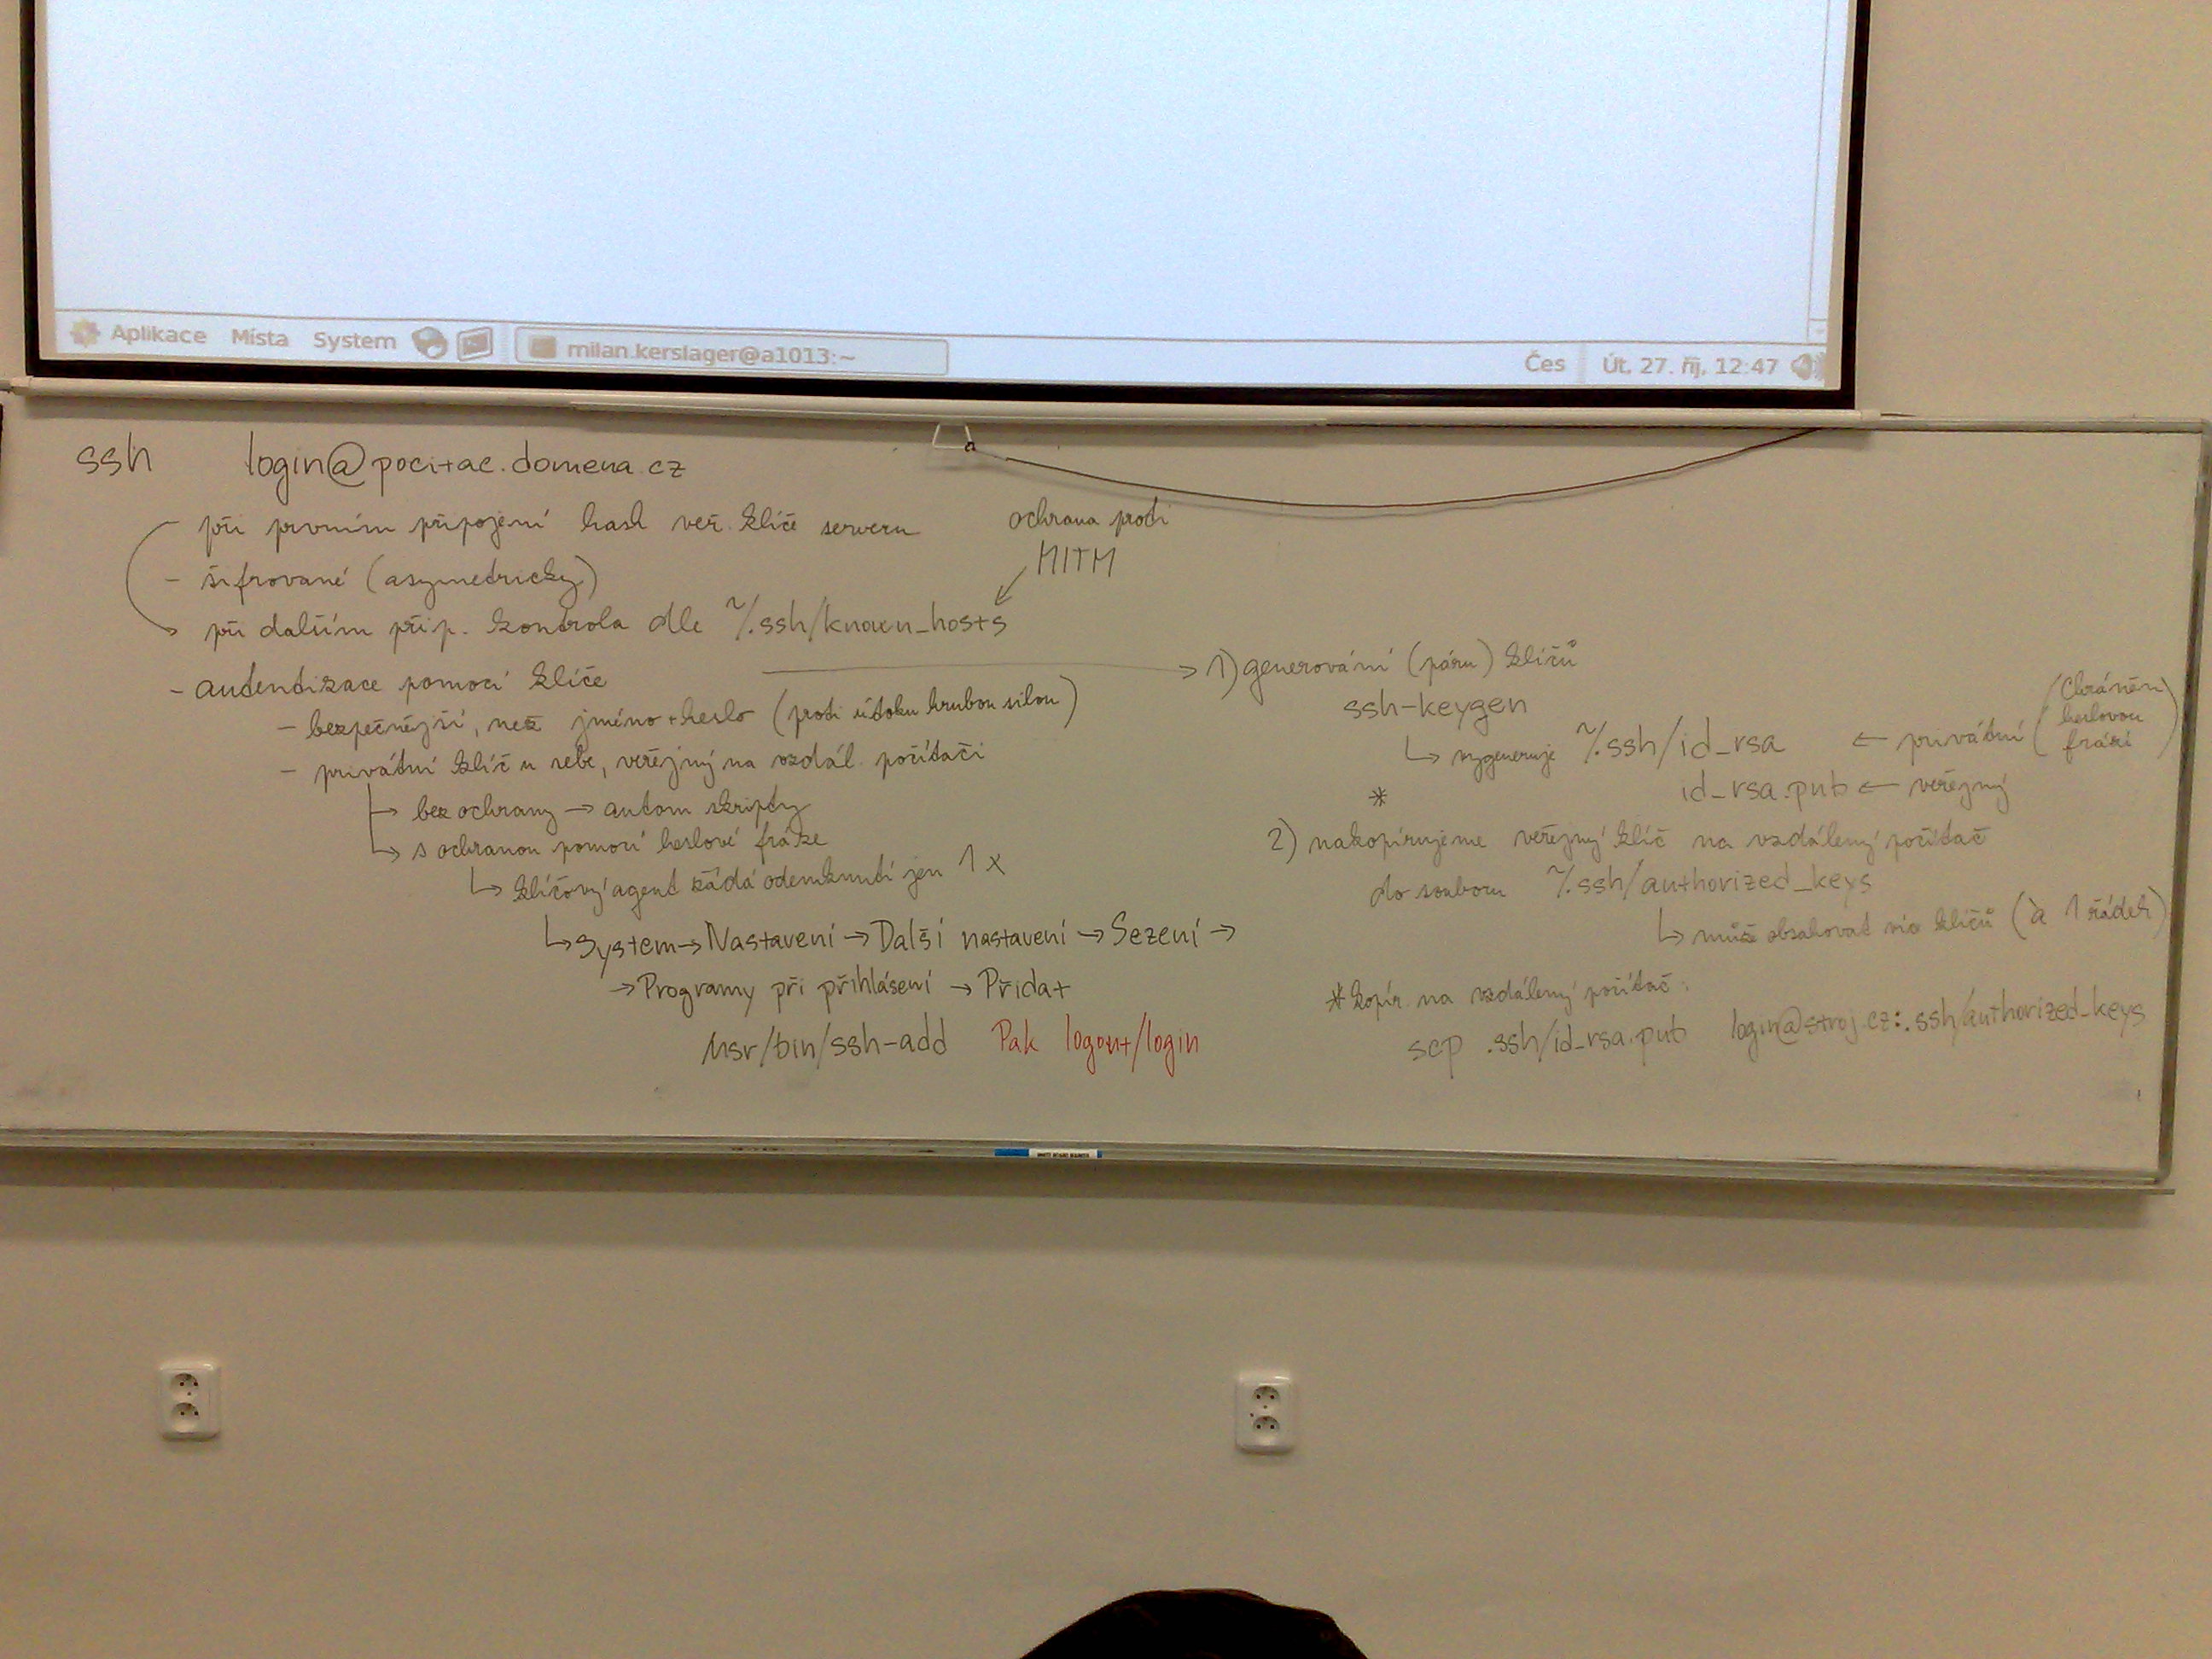 Aplikace Místa System milan.kerslager@a1013:~ Čes Út, 27. říj, 12:47
ssh login@pocitac.domena.cz
při prvním připojení hash veř. klíče serveru
ochrana proti
MITM
- šifrované (asymetricky)
při dalším přip. kontrola dle ~/.ssh/known_hosts
- autentizace pomocí klíče
- bezpečnější, než jméno+heslo (proti útoku hrubou silou)
- privátní klíč u sebe, veřejný na vzdál. počítači
↳ bez ochrany → autom skripty
↳ s ochranou pomocí heslové fráze
↳ klíčový agent žádá odemknutí jen 1 x
↳ System → Nastavení → Další nastavení → Sezení →
→ Programy při přihlášení → Přidat
/usr/bin/ssh-add Pak logout/login
→ 1) generování (páru) klíčů
ssh-keygen
↳ vygeneruje ~/.ssh/id_rsa ← privátní (chráněn heslovou frází)
* id_rsa.pub ← veřejný
2) nakopírujeme veřejný klíč na vzdálený počítač
do souboru ~/.ssh/authorized_keys
↳ může obsahovat víc klíčů (à 1 řádek)
* kopír. na vzdálený počítač:
scp .ssh/id_rsa.pub login@stroj.cz:.ssh/authorized_keys